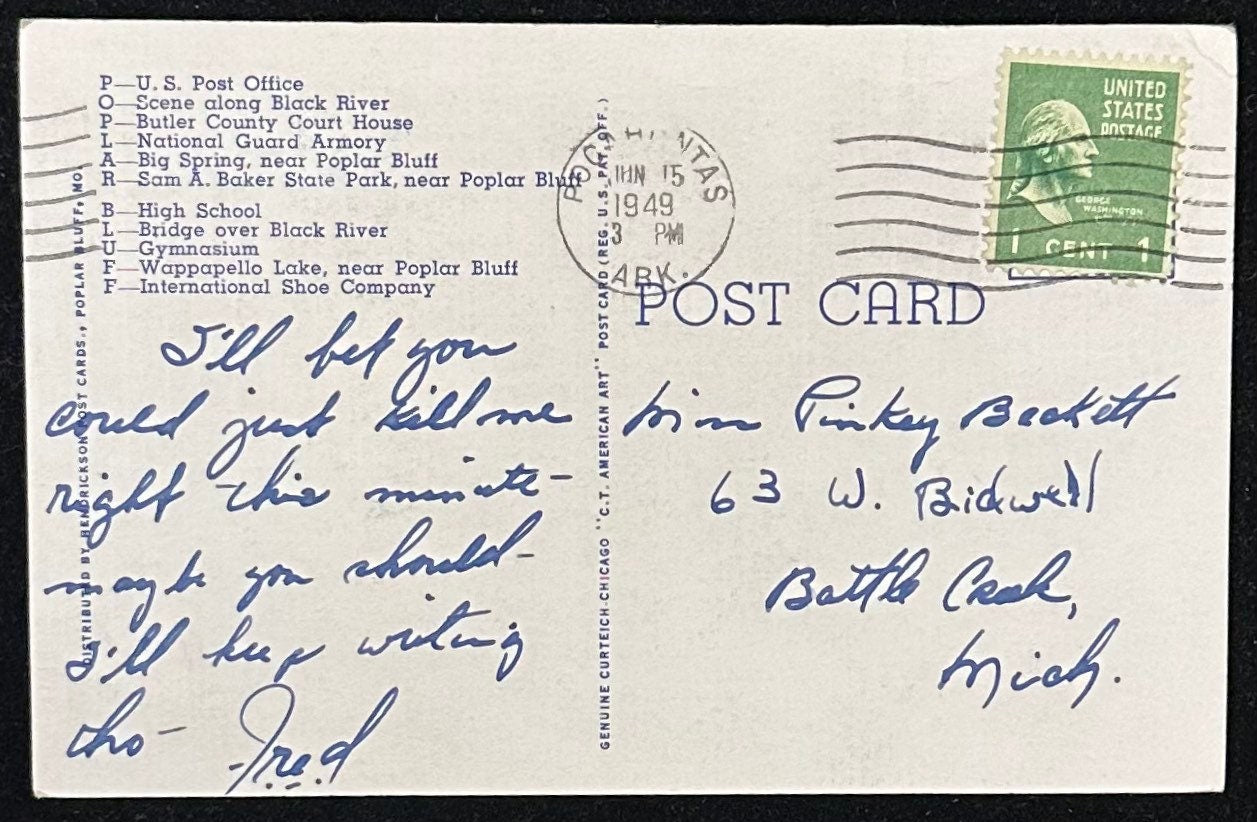 P—U.S. Post Office
O—Scene along Black River
P—Butler County Court House
L—National Guard Armory
A—Big Spring, near Poplar Bluff
R—Sam A. Baker State Park, near Poplar Bluff
B—High School
L—Bridge over Black River
U—Gymnasium
F—Wappapello Lake, near Poplar Bluff
F—International Shoe Company
DISTRIBUTED BY HENDRICKSON POST CARDS., POPLAR BLUFF, MO.
I'll bet you
could just kill me
right this minute—
maybe you should—
I'll keep writing
tho—
Fred
GENUINE CURTEICH-CHICAGO "C.T. AMERICAN ART" POST CARD (REG. U.S. PAT. OFF.)
POCAHONTAS
JUN 15
1949
3 PM
ARK.
UNITED
STATES
POSTAGE
GEORGE
WASHINGTON
1 CENT 1
POST CARD
Miss Pinkey Backett
63 W. Bidwell
Battle Creek,
Mich.